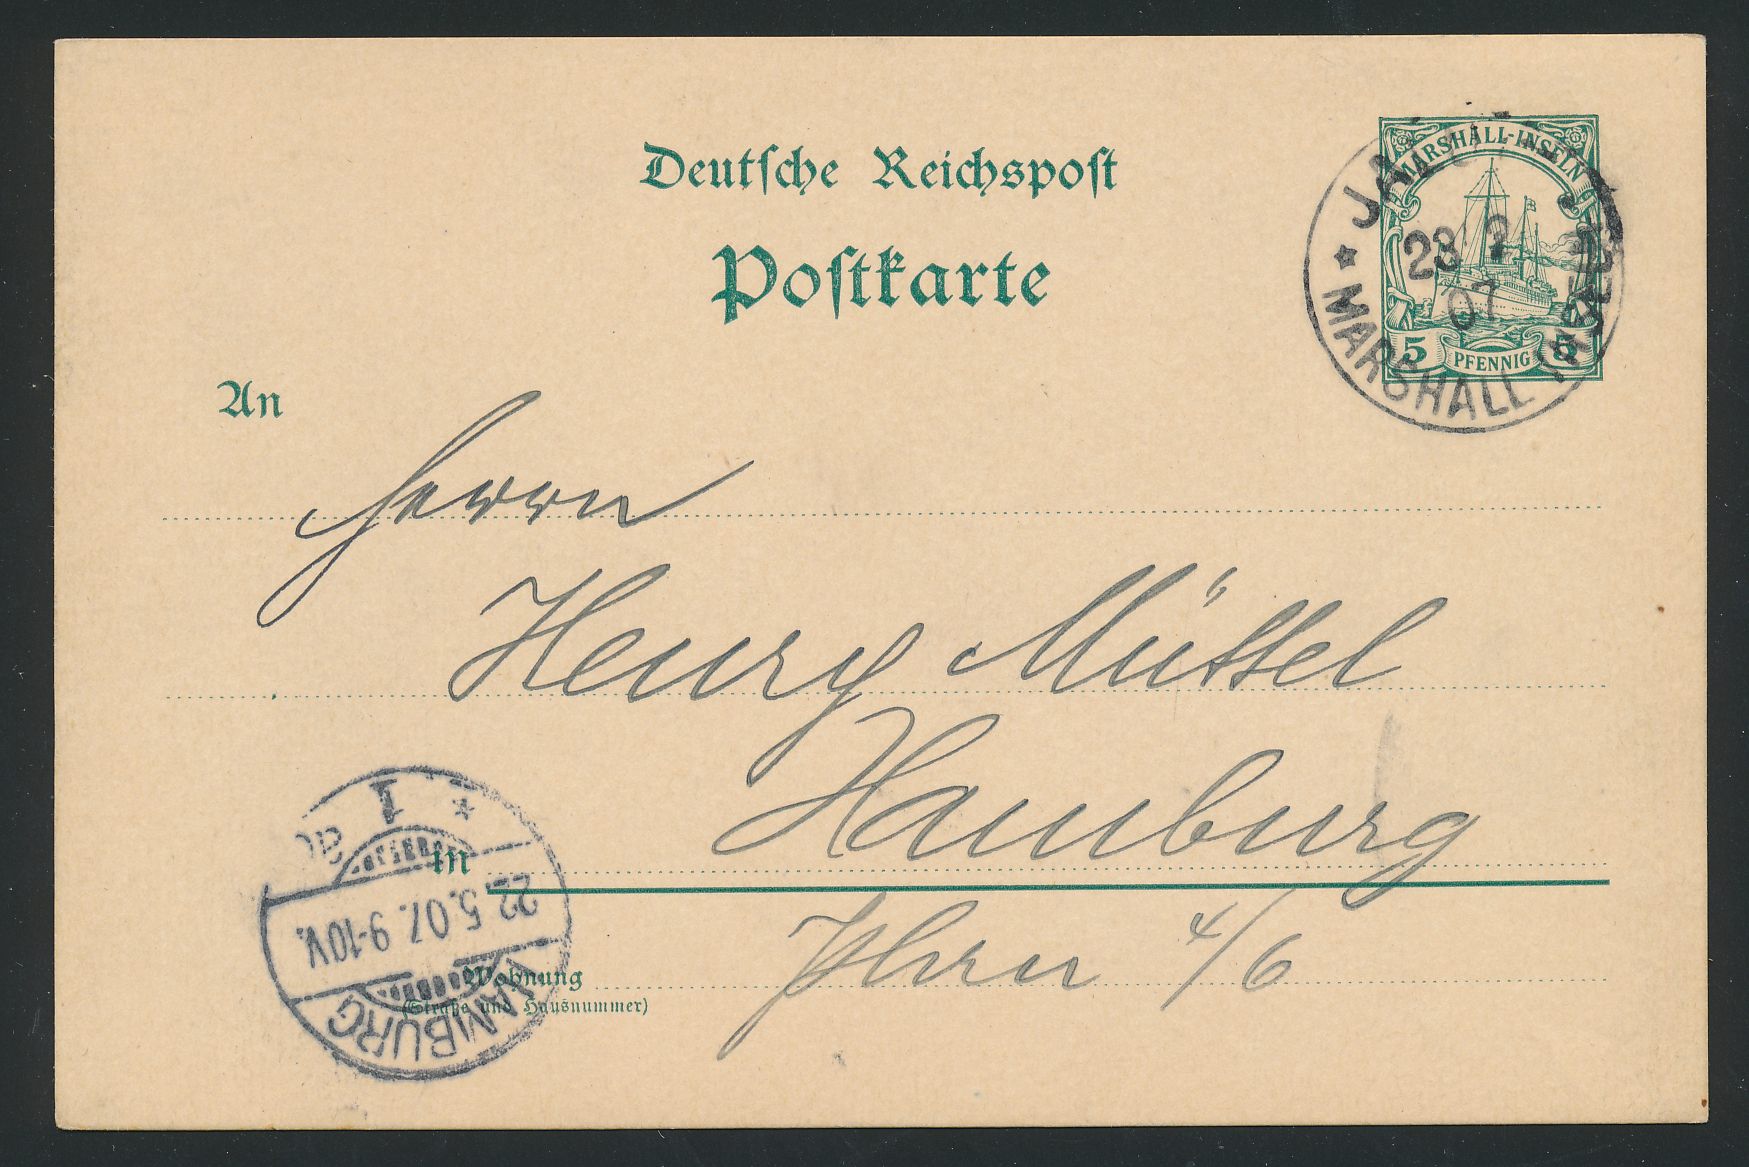 Deutsche Reichspost
Postkarte
MARSHALL-INSELN
5 PFENNIG 5
23 2
07
MARSHALL
An
Herrn
Henry Müssel
Hamburg
in
4/6
Wohnung
(Straße und Hausnummer)
HAMBURG
22.5.07. 9-10V.
* 1